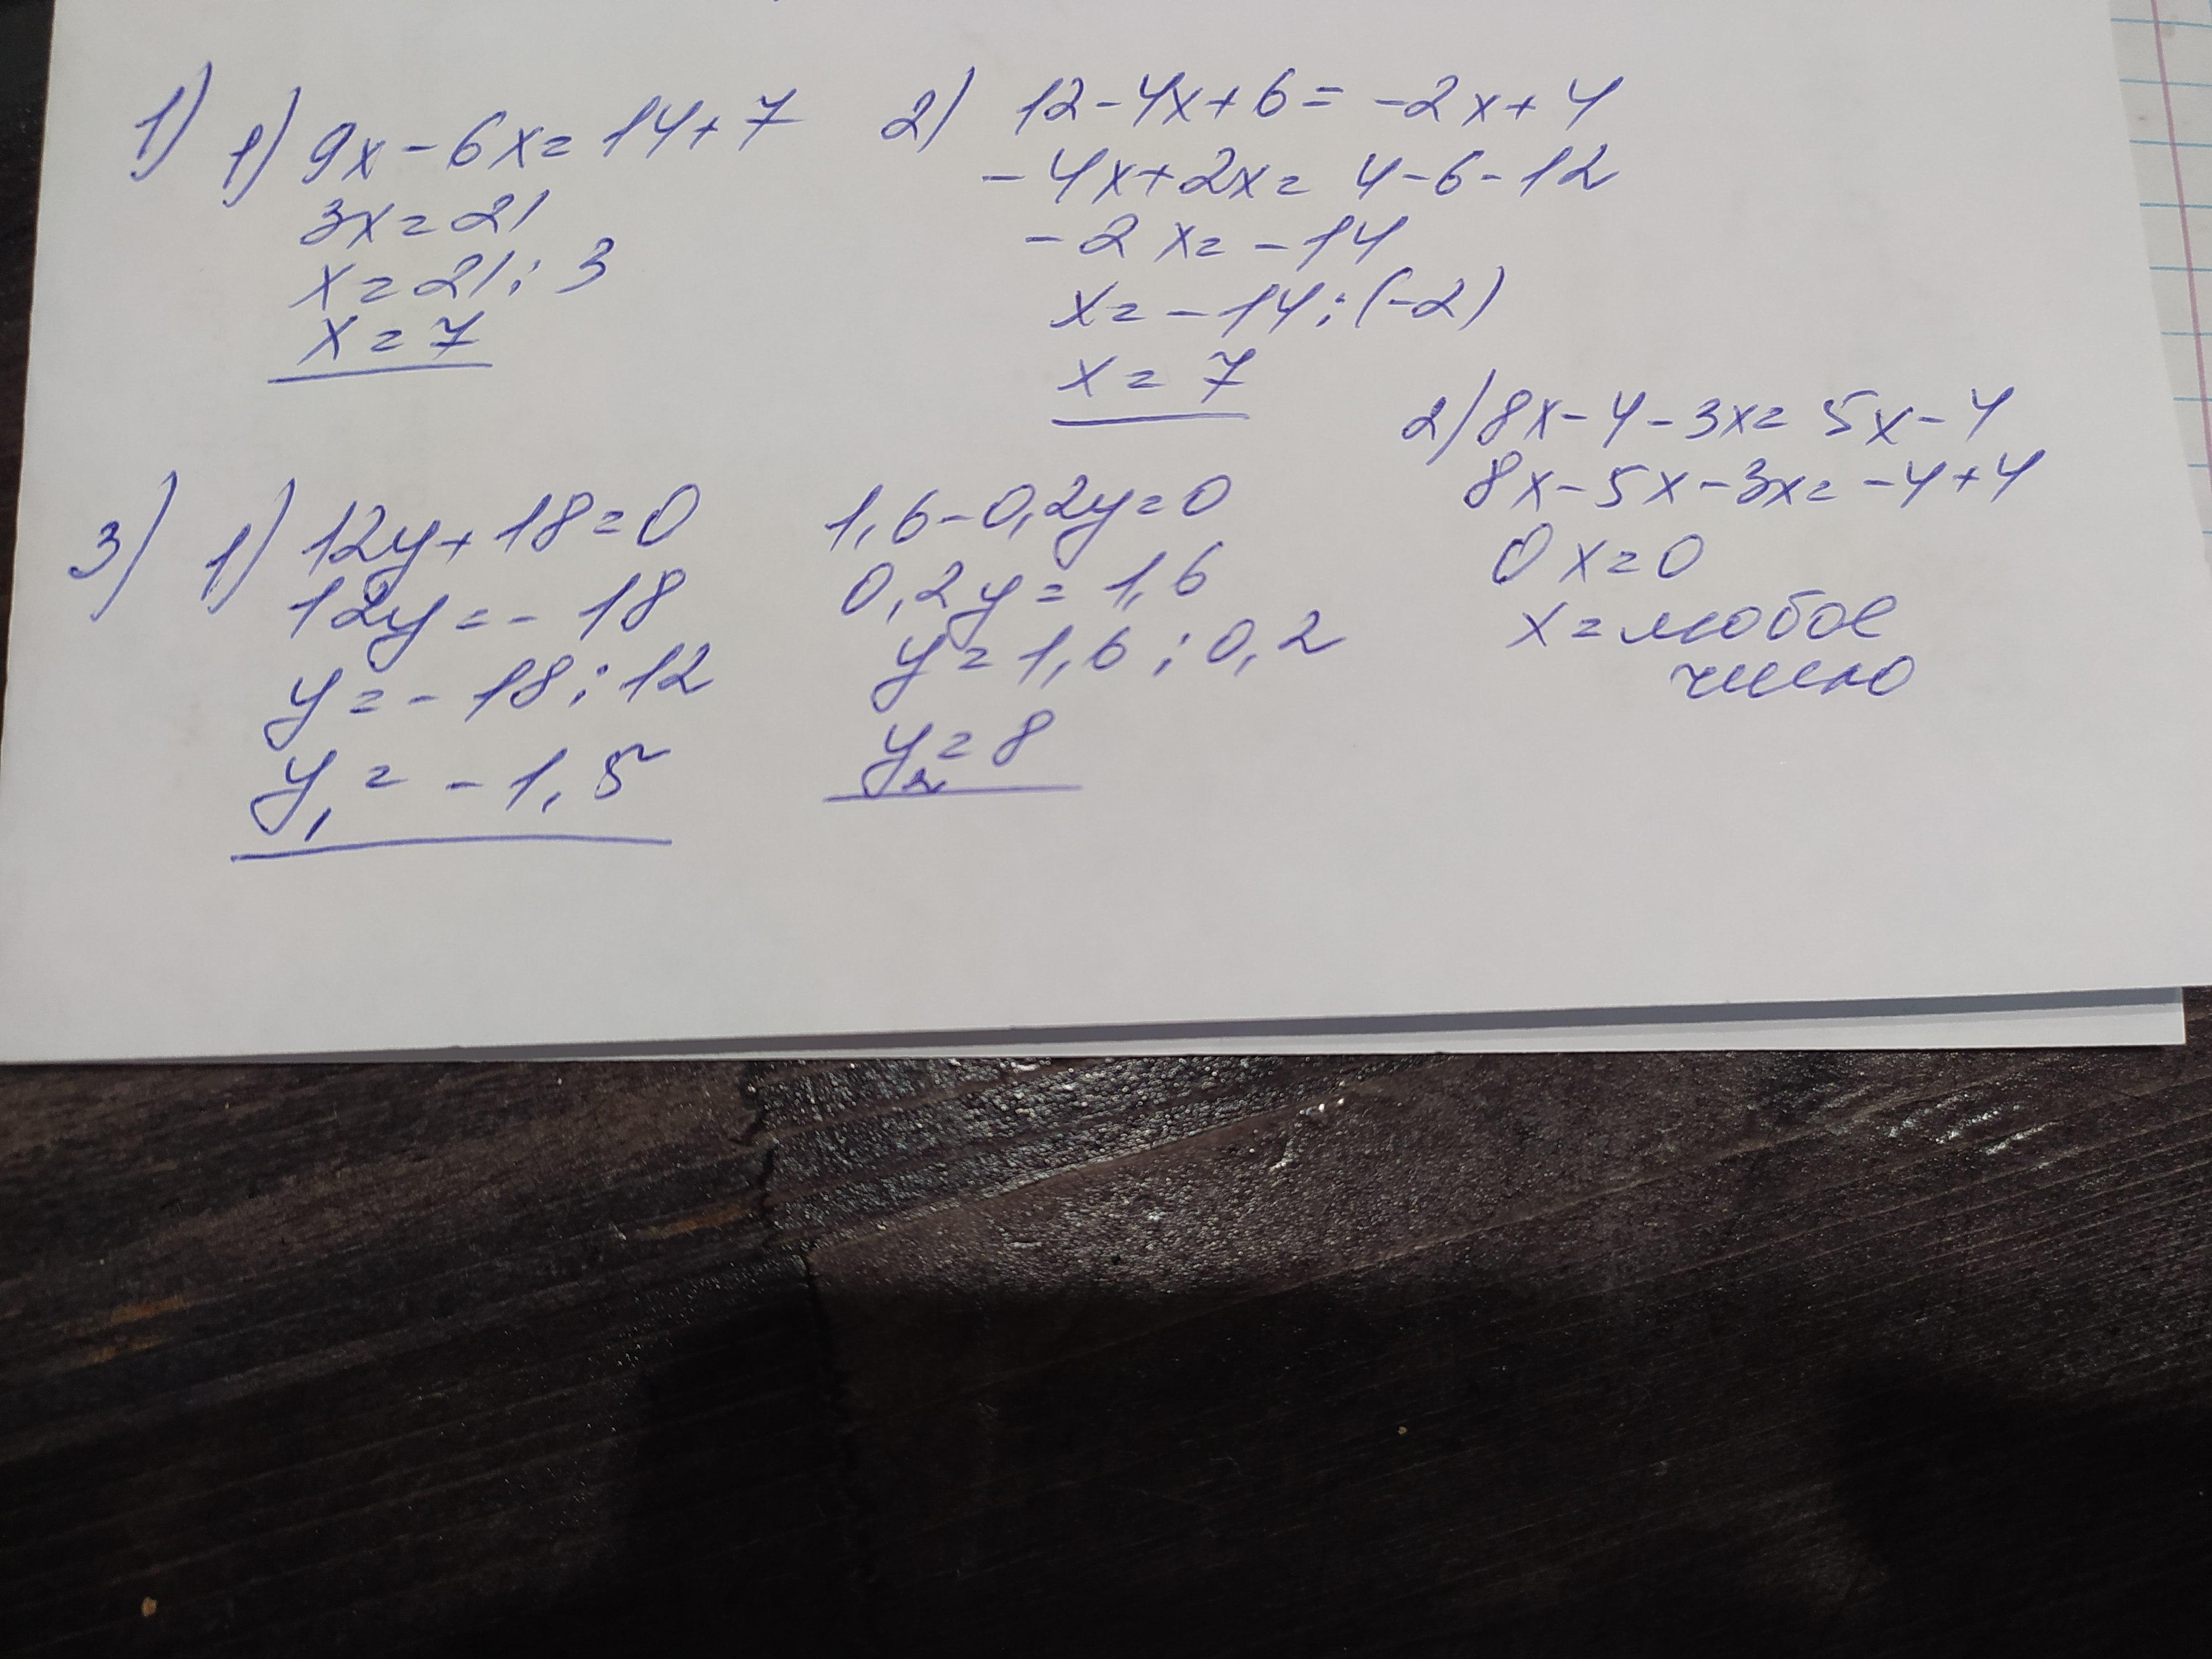 1) 1) 9x - 6x = 14 + 7
3x = 21
x = 21 : 3
x = 7
2) 12 - 4x + 6 = -2x + 4
-4x + 2x = 4 - 6 - 12
-2x = -14
x = -14 : (-2)
x = 7
3) 1) 12y + 18 = 0
12y = - 18
y = - 18 : 12
y₁ = - 1,5
1,6 - 0,2y = 0
0,2y = 1,6
y = 1,6 : 0,2
y₂ = 8
2) 8x - 4 - 3x = 5x - 4
8x - 5x - 3x = -4 + 4
0x = 0
x = любое
число